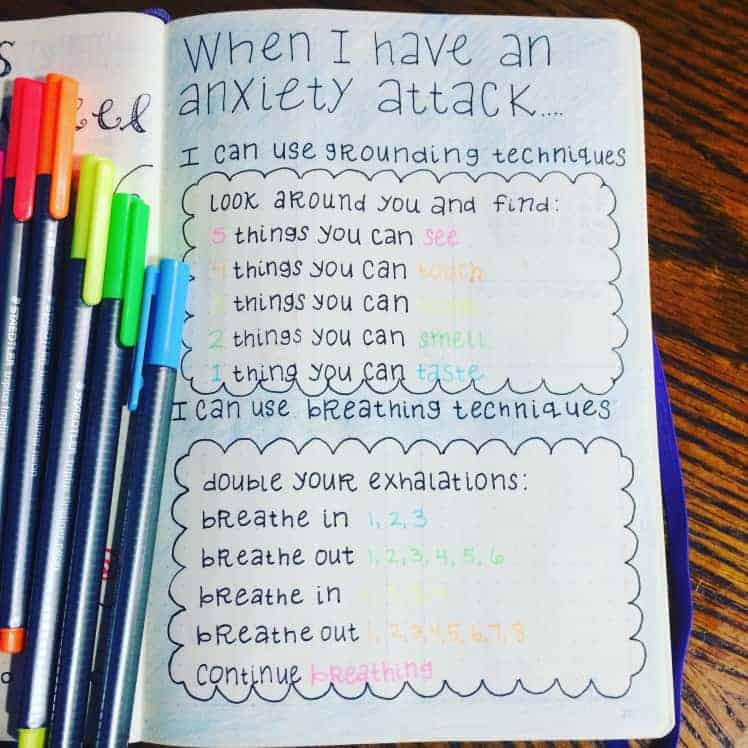 When I have an
anxiety attack....
I can use grounding techniques
Look around you and find:
5 things you can see
4 things you can touch
3 things you can
2 things you can smell
1 thing you can taste
I can use breathing techniques
double your exhalations:
breathe in 1, 2, 3
breathe out 1, 2, 3, 4, 5, 6
breathe in 1, 2, 3, 4
breathe out 1, 2, 3, 4, 5, 6, 7, 8
continue breathing
STAEDTLER
STAEDTLER